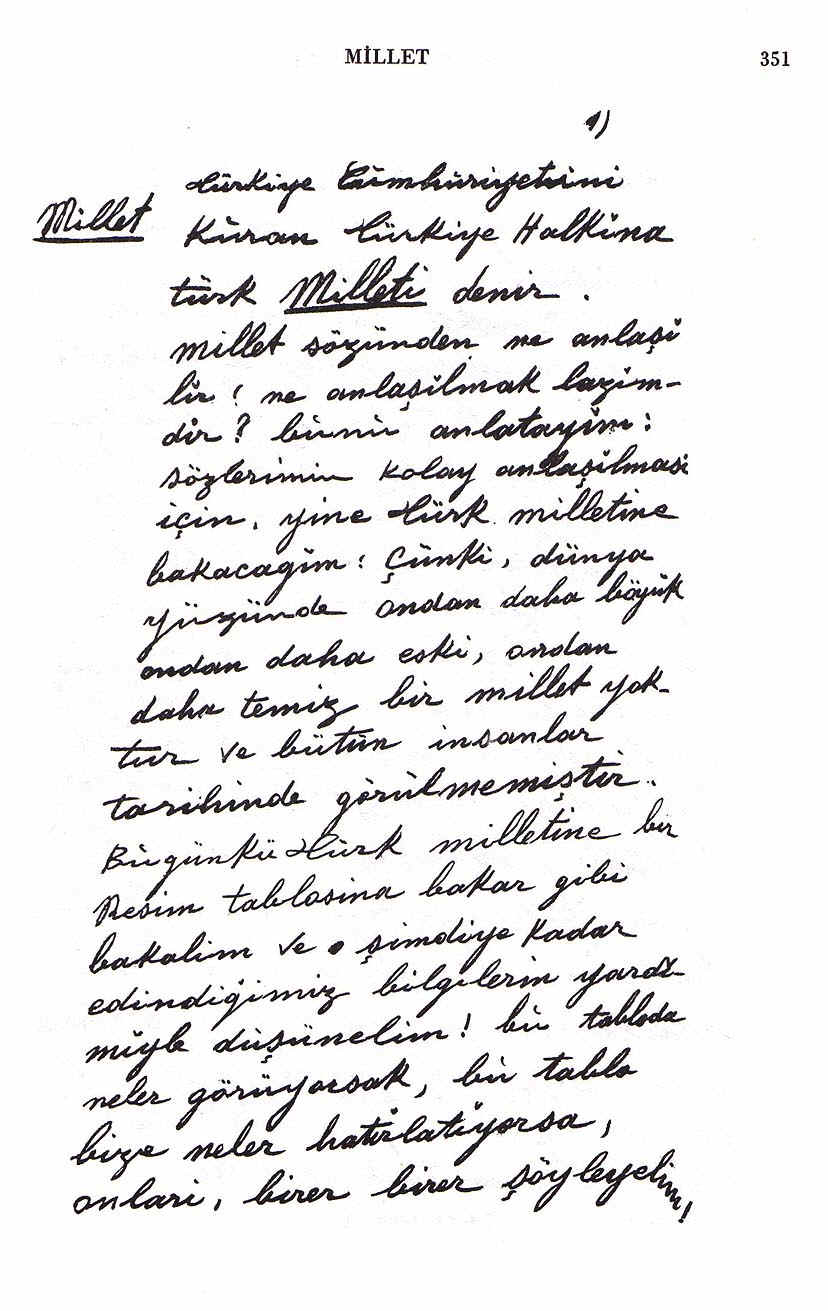 MİLLET 351
1)
Türkiye Cümhuriyetini
Millet Kuran Türkiye Halkına
türk Milleti denir.
millet sözünden ne anlaşı
lır ! ne anlaşılmak lazım-
dır ? bunu anlatayım :
sözlerimin kolay anlaşılması
için, yine Türk milletine
bakacağım : Çünki, dünya
yüzünde ondan daha böyük
ondan daha eski, ondan
daha temiz bir millet yok-
tur ve bütün insanlar
tarihinde görülmemiştir.
Bugünkü Türk milletine bir
Resim tablosına bakar gibi
bakalım ve şimdiye kadar
edindiğimiz bilgilerin yardı-
mıyle düşünelim ! bu tabloda
neler görüyorsak, bu tablo
bize neler hatırlatıyorsa,
onları, birer birer söyleyelim!